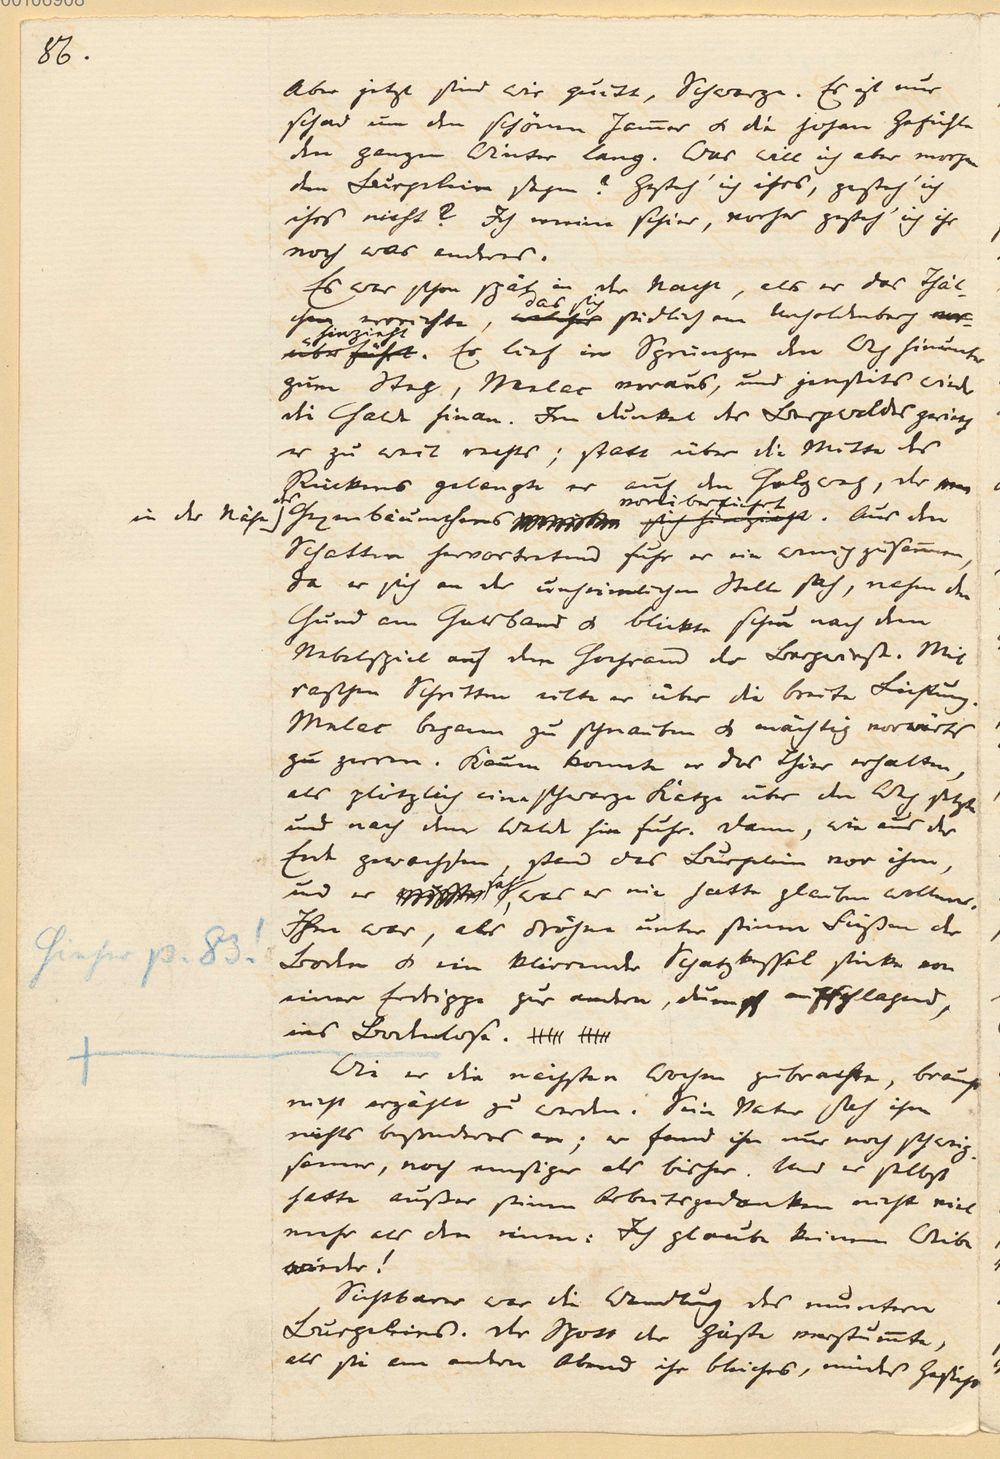 00106908
86.
Aber jetzt sind wir quitt, Schwarze. Es ist nur
schad um den schönen Jam̄er & die hohen Gefühle
den ganzen Winter lang. Was will ich aber morgen
dem Burgelein sagen? Gesteh' ich ihrs, gesteh' ich
ihrs nicht? Ich meine schier, vorher gesteh' ich ihr
noch was anderes.
Es war schon spät in der Nacht, als er das Thäl-
chen erreichte, welches das sich südlich am Unholdenberg vor-
überführt hinzieht. Er lief in Sprüngen den Weg hinunter
zum Steg, Melac voraus, und jenseits wieder
die Halde hinan. Im Dunkel des Bergwaldes geriet
er zu weit rechts; statt über die Mitte des
Rückens gelangte er auf den Holzweg, der
in der Nähe des Hexenbäumchens sich hinzieht vorüberführt. Aus den
Schatten hervortretend fuhr er ein wenig zusam̄en,
da er sich an der unheimlichen Stelle sah, nahm den
Hund am Halsband & blickte scheu nach dem
Nebelspiel auf dem Hochrand der Bergwiese. Mit
raschen Schritten eilte er über die breite Lichtung.
Melac begann zu schnauben & mächtig vorwärts
zu zerren. Kaum konnte er das Thier erhalten,
als plötzlich eine schwarze Katze über den Weg setzte
und nach dem Walde hin fuhr. Dann, wie aus der
Erde gewachsen, stand das Burgelein vor ihm,
und er sah, was er nie hatte glauben wollen.
Ihm war, als dröhne unter seinen Füßen der
Boden & ein klirrender Schatzkessel sinke von
einer Erdrippe zur andern, dumpf aufschlagend,
ins Bodenlose.
Hieher p. 83!
Wie er die nächsten Wochen zubrachte, braucht
nicht erzählt zu werden. Sein Vater sah ihm
nichts besonderes an; er fand ihn nur noch schweig-
samer, noch emsiger als bisher. Und er selbst
hatte außer seinen Arbeitsgedanken nicht viel
mehr als den einen: Ich glaube keinem Weibe
wieder!
Sichtbarer war die Wandlung des muntern
Burgeleins. Der Spott der Gäste verstum̄te,
als sie am andern Abend ihr bleiches, müdes Gesicht